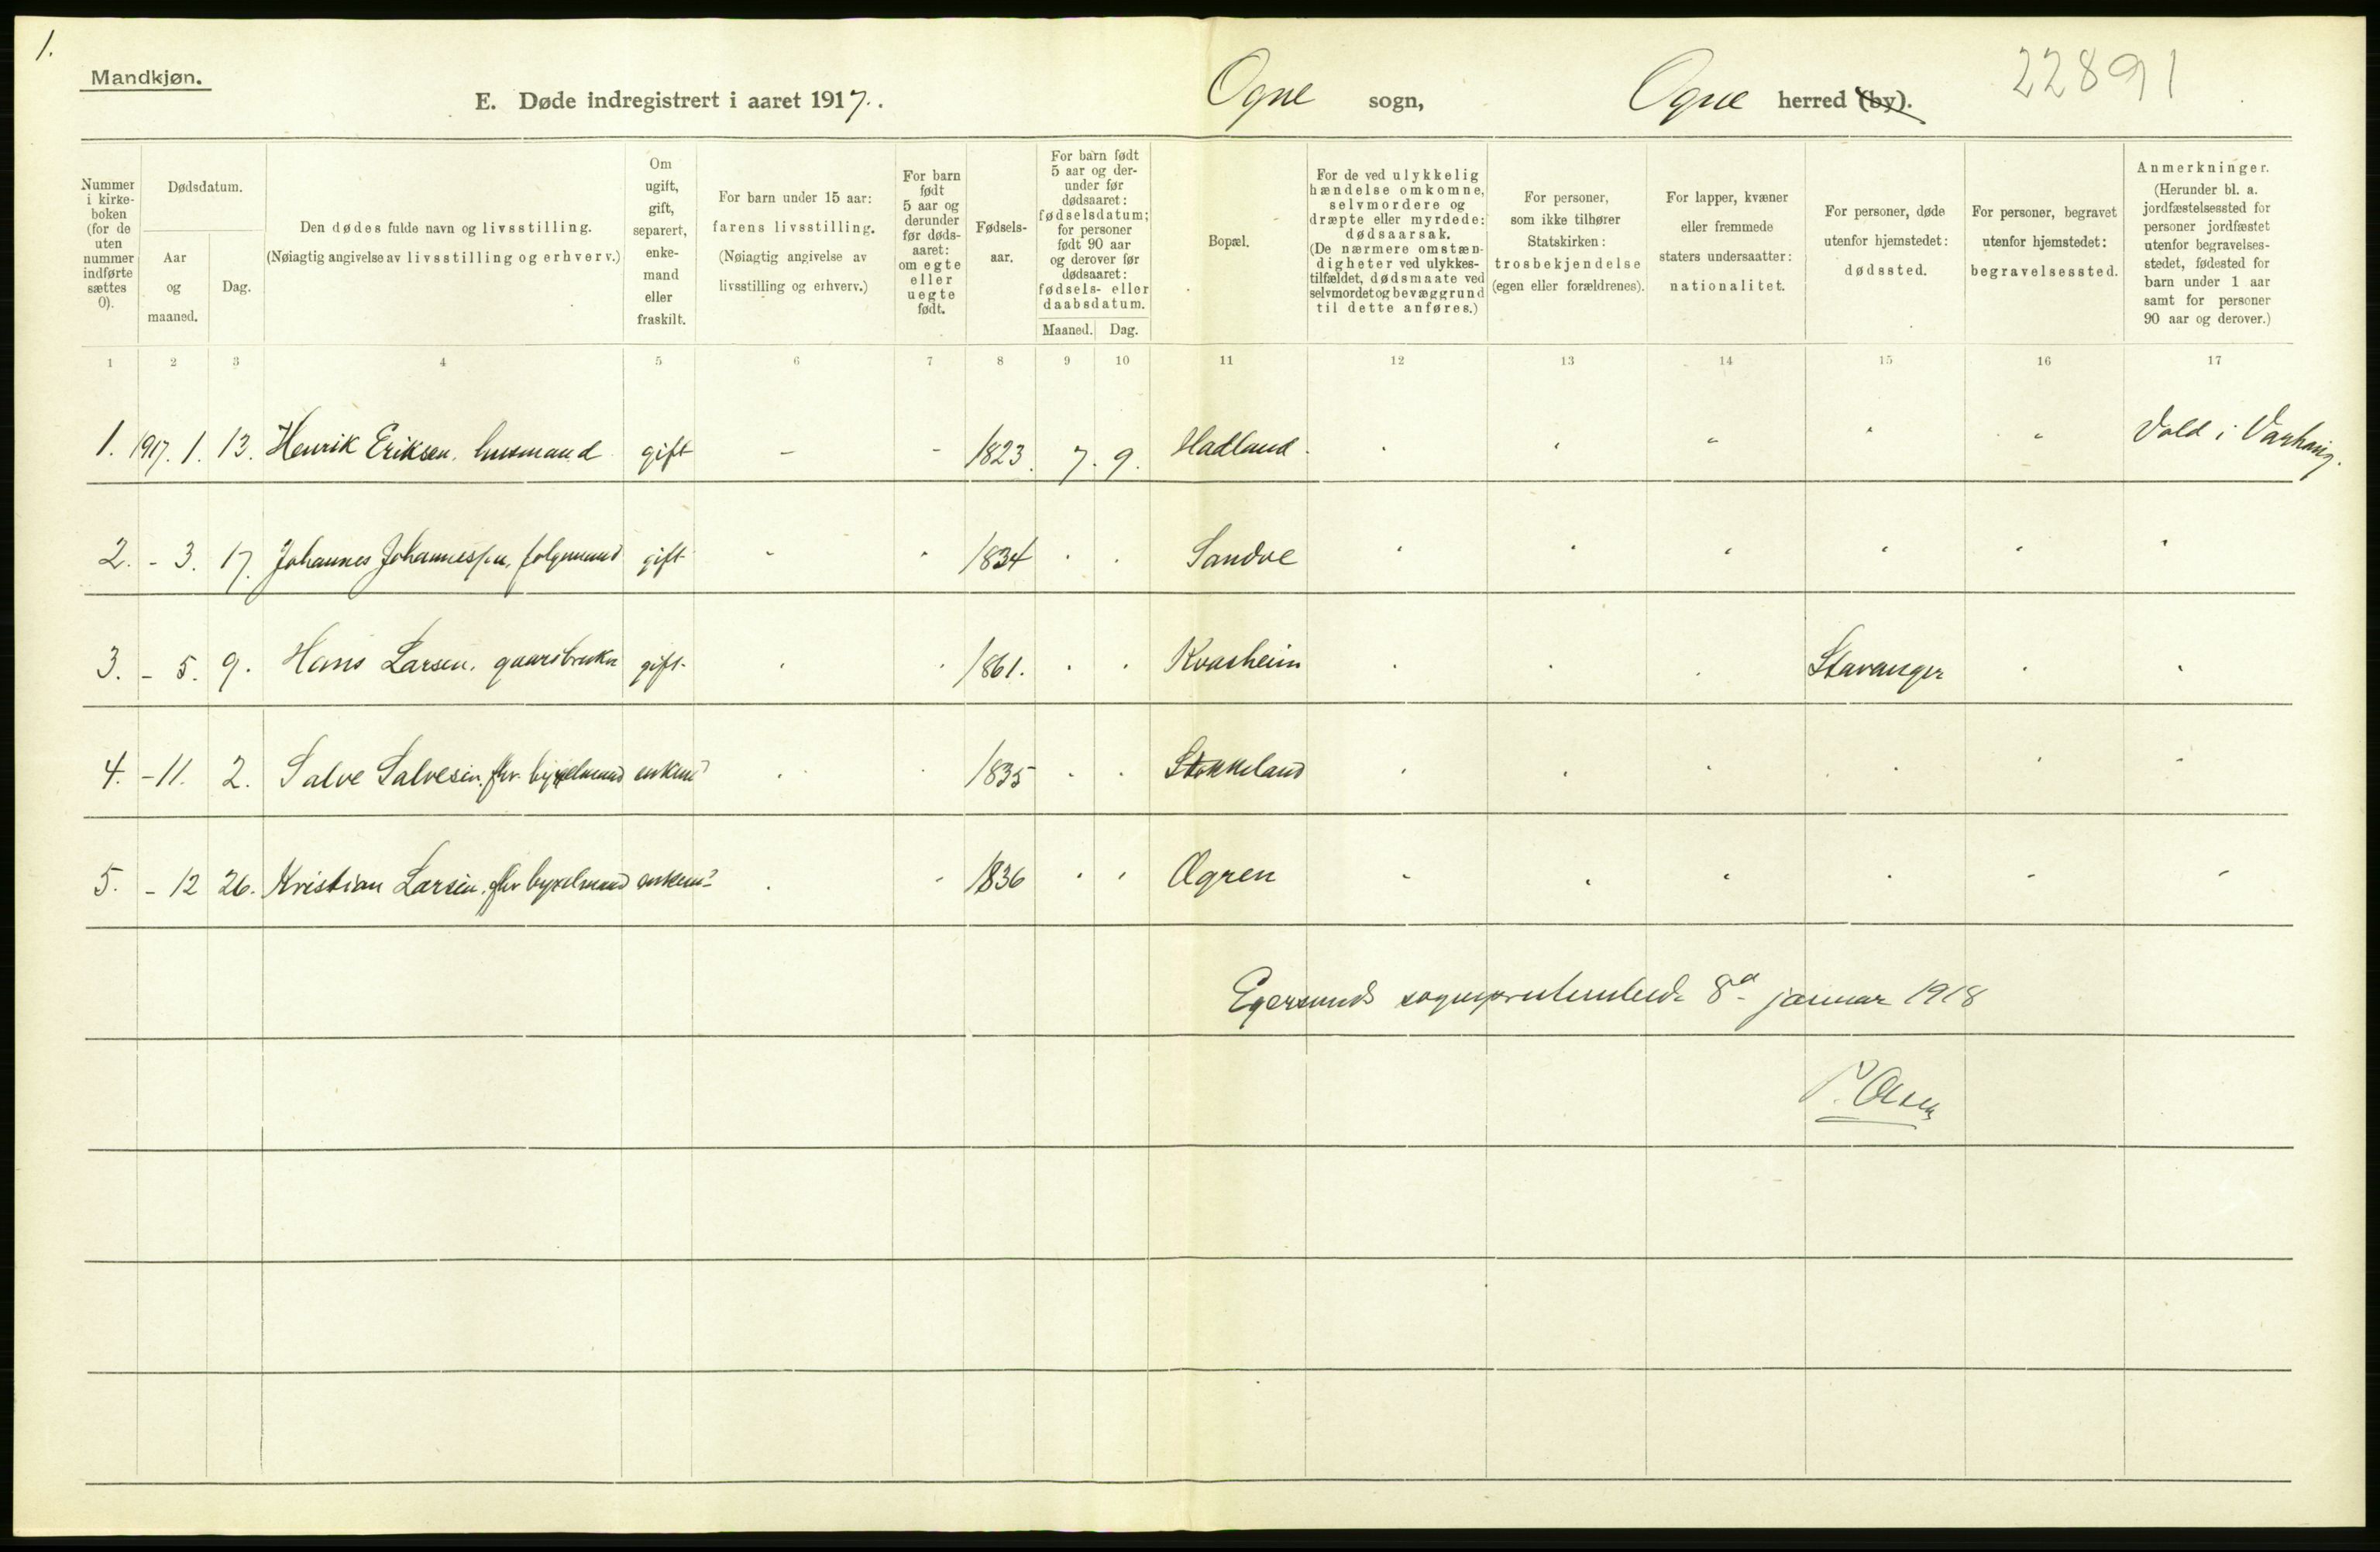 1.
Mandkjøn.
E. Døde indregistrert i aaret 1917.
Ogne sogn, Ogne herred (by).
22891
Nummer i kirkeboken (for de uten nummer indførte sættes 0).
Dødsdatum.
Aar og maaned.
Dag.
Den dødes fulde navn og livsstilling.
(Nøiagtig angivelse av livsstilling og erhverv.)
Om ugift, gift, separert, enkemand eller fraskilt.
For barn under 15 aar:
farens livsstilling.
(Nøiagtig angivelse av livsstilling og erhverv.)
For barn født 5 aar og derunder før dødsaaret: om egte eller uegte født.
Fødselsaar.
For barn født 5 aar og derunder før dødsaaret: fødselsdatum; for personer født 90 aar og derover før dødsaaret: fødsels- eller daabsdatum.
Maaned. Dag.
Bopæl.
For de ved ulykkelig hændelse omkomne, selvmordere og dræpte eller myrdede: dødsaarsak.
(De nærmere omstændigheter ved ulykkestilfældet, dødsmaate ved selvmordet og bevæggrund til dette anføres.)
For personer, som ikke tilhører Statskirken: trosbekjendelse (egen eller forældrenes).
For lapper, kvæner eller fremmede staters undersaatter: nationalitet.
For personer, døde utenfor hjemstedet: dødssted.
For personer, begravet utenfor hjemstedet: begravelsessted.
Anmerkninger.
(Herunder bl. a. jordfæstelsessted for personer jordfæstet utenfor begravelsesstedet, fødested for barn under 1 aar samt for personer 90 aar og derover.)
1 2 3 4 5 6 7 8 9 10 11 12 13 14 15 16 17
1. 1917. 1. 13. Henrik Eriksen, husmand gift - - 1823. 7. 9. Hadland Vold i Varhaug.
2. - 3. 17. Johannes Johannessen, folgemand gift 1834 Sandve
3. - 5. 9. Hans Larsen, gaardbruker gift 1861. Kvasheim Stavanger
4. - 11. 2. Salve Salvesen, fhv. bygselmand enkemd 1835 Stokkeland
5. - 12 26. Kristian Larsen, fhv bygselmand enkemd 1836 Ogren
Egersunds sogneprestembede 8d januar 1918
P. Olsen